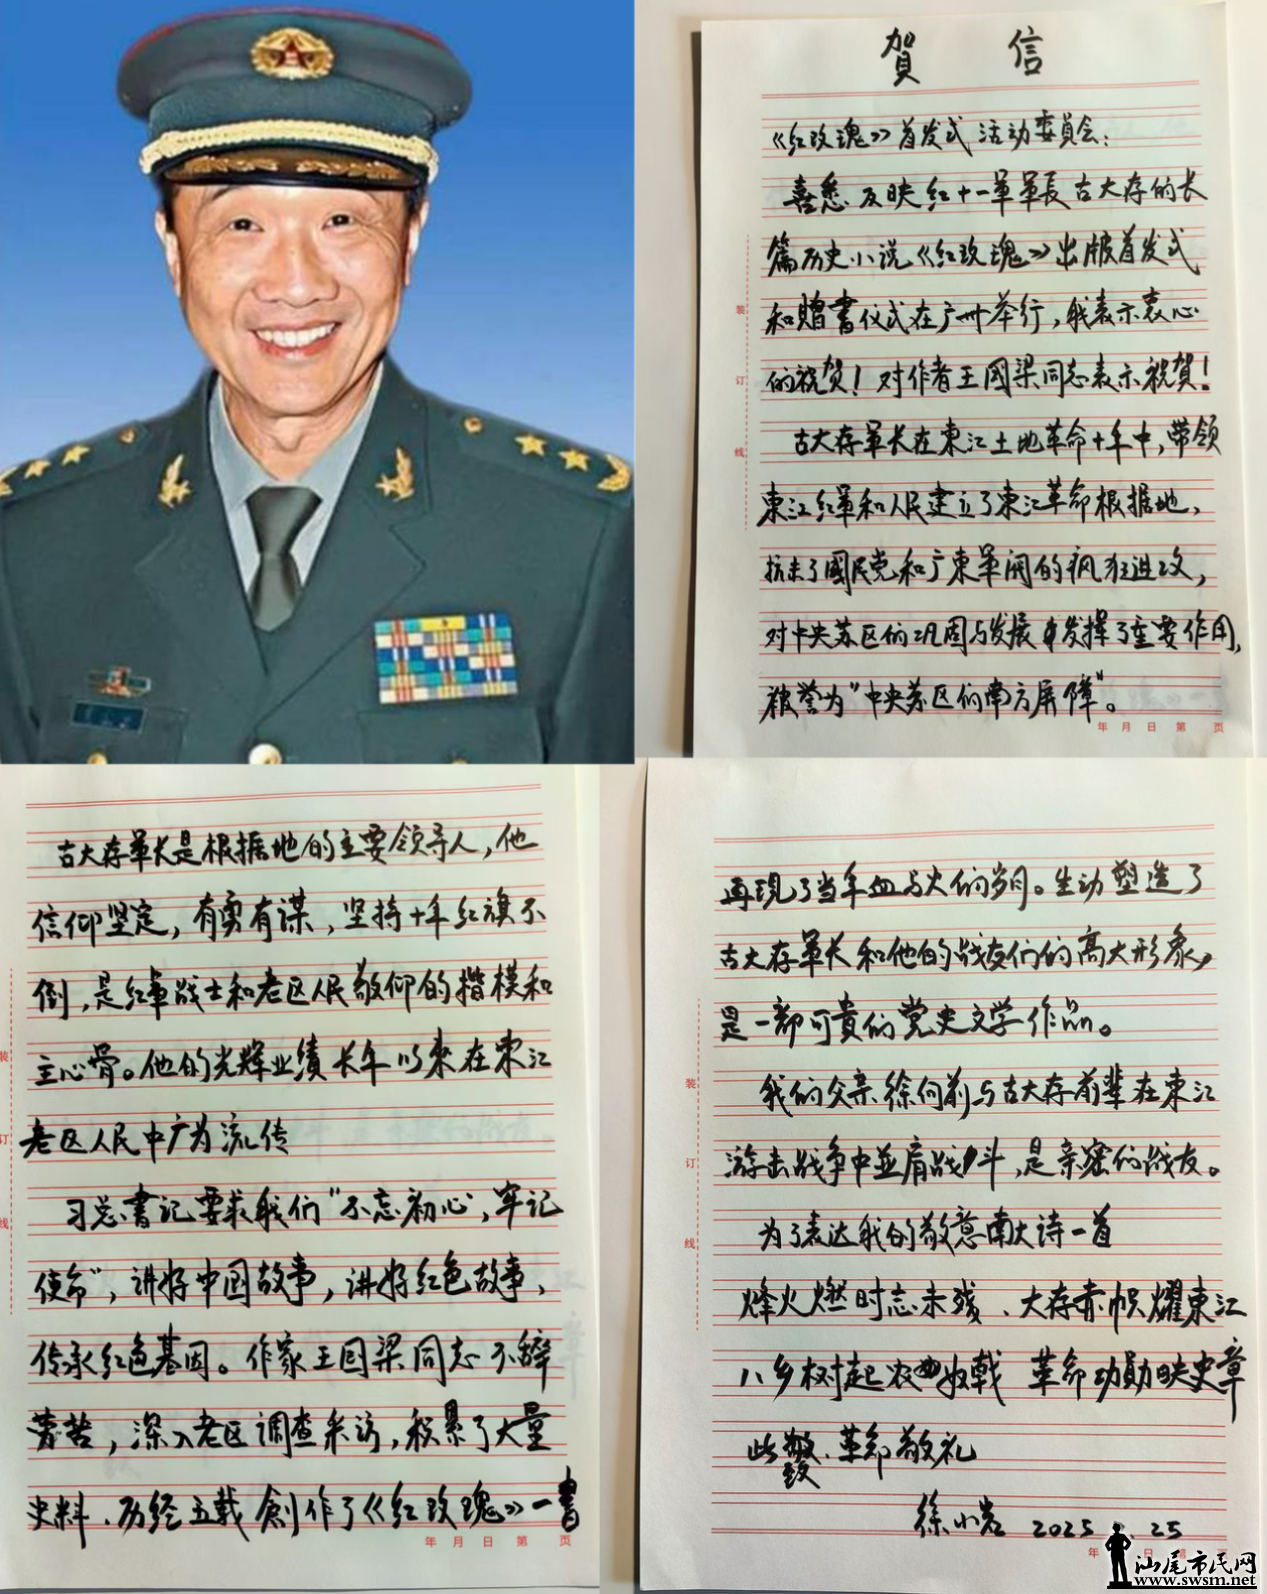 賀 信
《红玫瑰》首发式活动委員会：
喜悉反映红十一軍軍長古大存的长
篇历史小说《红玫瑰》出版首发式
和贈書仪式在广州举行，我表示衷心
的祝贺！对作者王國梁同志表示祝賀！
古大存軍长在東江土地革命十年中，带领
東江红軍和人民建立了東江革命根据地，
抗击了國民党和广東軍阀的疯狂进攻，
对中央苏区的巩固与发展发揮了重要作用，
被誉为“中央苏区的南方屏障”。
年 月 日 第 页
装
订
线
古大存軍长是根据地的主要领导人，他
信仰坚定，有勇有谋，坚持十年红旗不
倒，是红軍战士和老区人民敬仰的楷模和
主心骨。他的光辉业績长年以来在東江
老区人民中广为流传
习总書记要求我们“不忘初心，牢记
使命”，讲好中国故事，讲好红色故事，
传承红色基因。作家王国梁同志不辞
劳苦，深入老区调查采访，积累了大量
史料、历经五载創作了《红玫瑰》一書
年 月 日 第 页
装
订
线
再现了当年血与火的岁月。生动塑造了
古大存軍长和他的战友们的高大形象，
是一部可貴的党史文学作品。
我们父亲徐向前与古大存前辈在東江
游击战争中並肩战斗，是亲密的战友。
为了表达我的敬意献诗一首
烽火燃时志未残、大存赤帜耀東江
八乡树起农奴戟 革命功勛映史章
此致、革命敬礼
徐小岩 2025 . 25
年 日 第
装
订
线
汕尾市民网
www.swsm.net